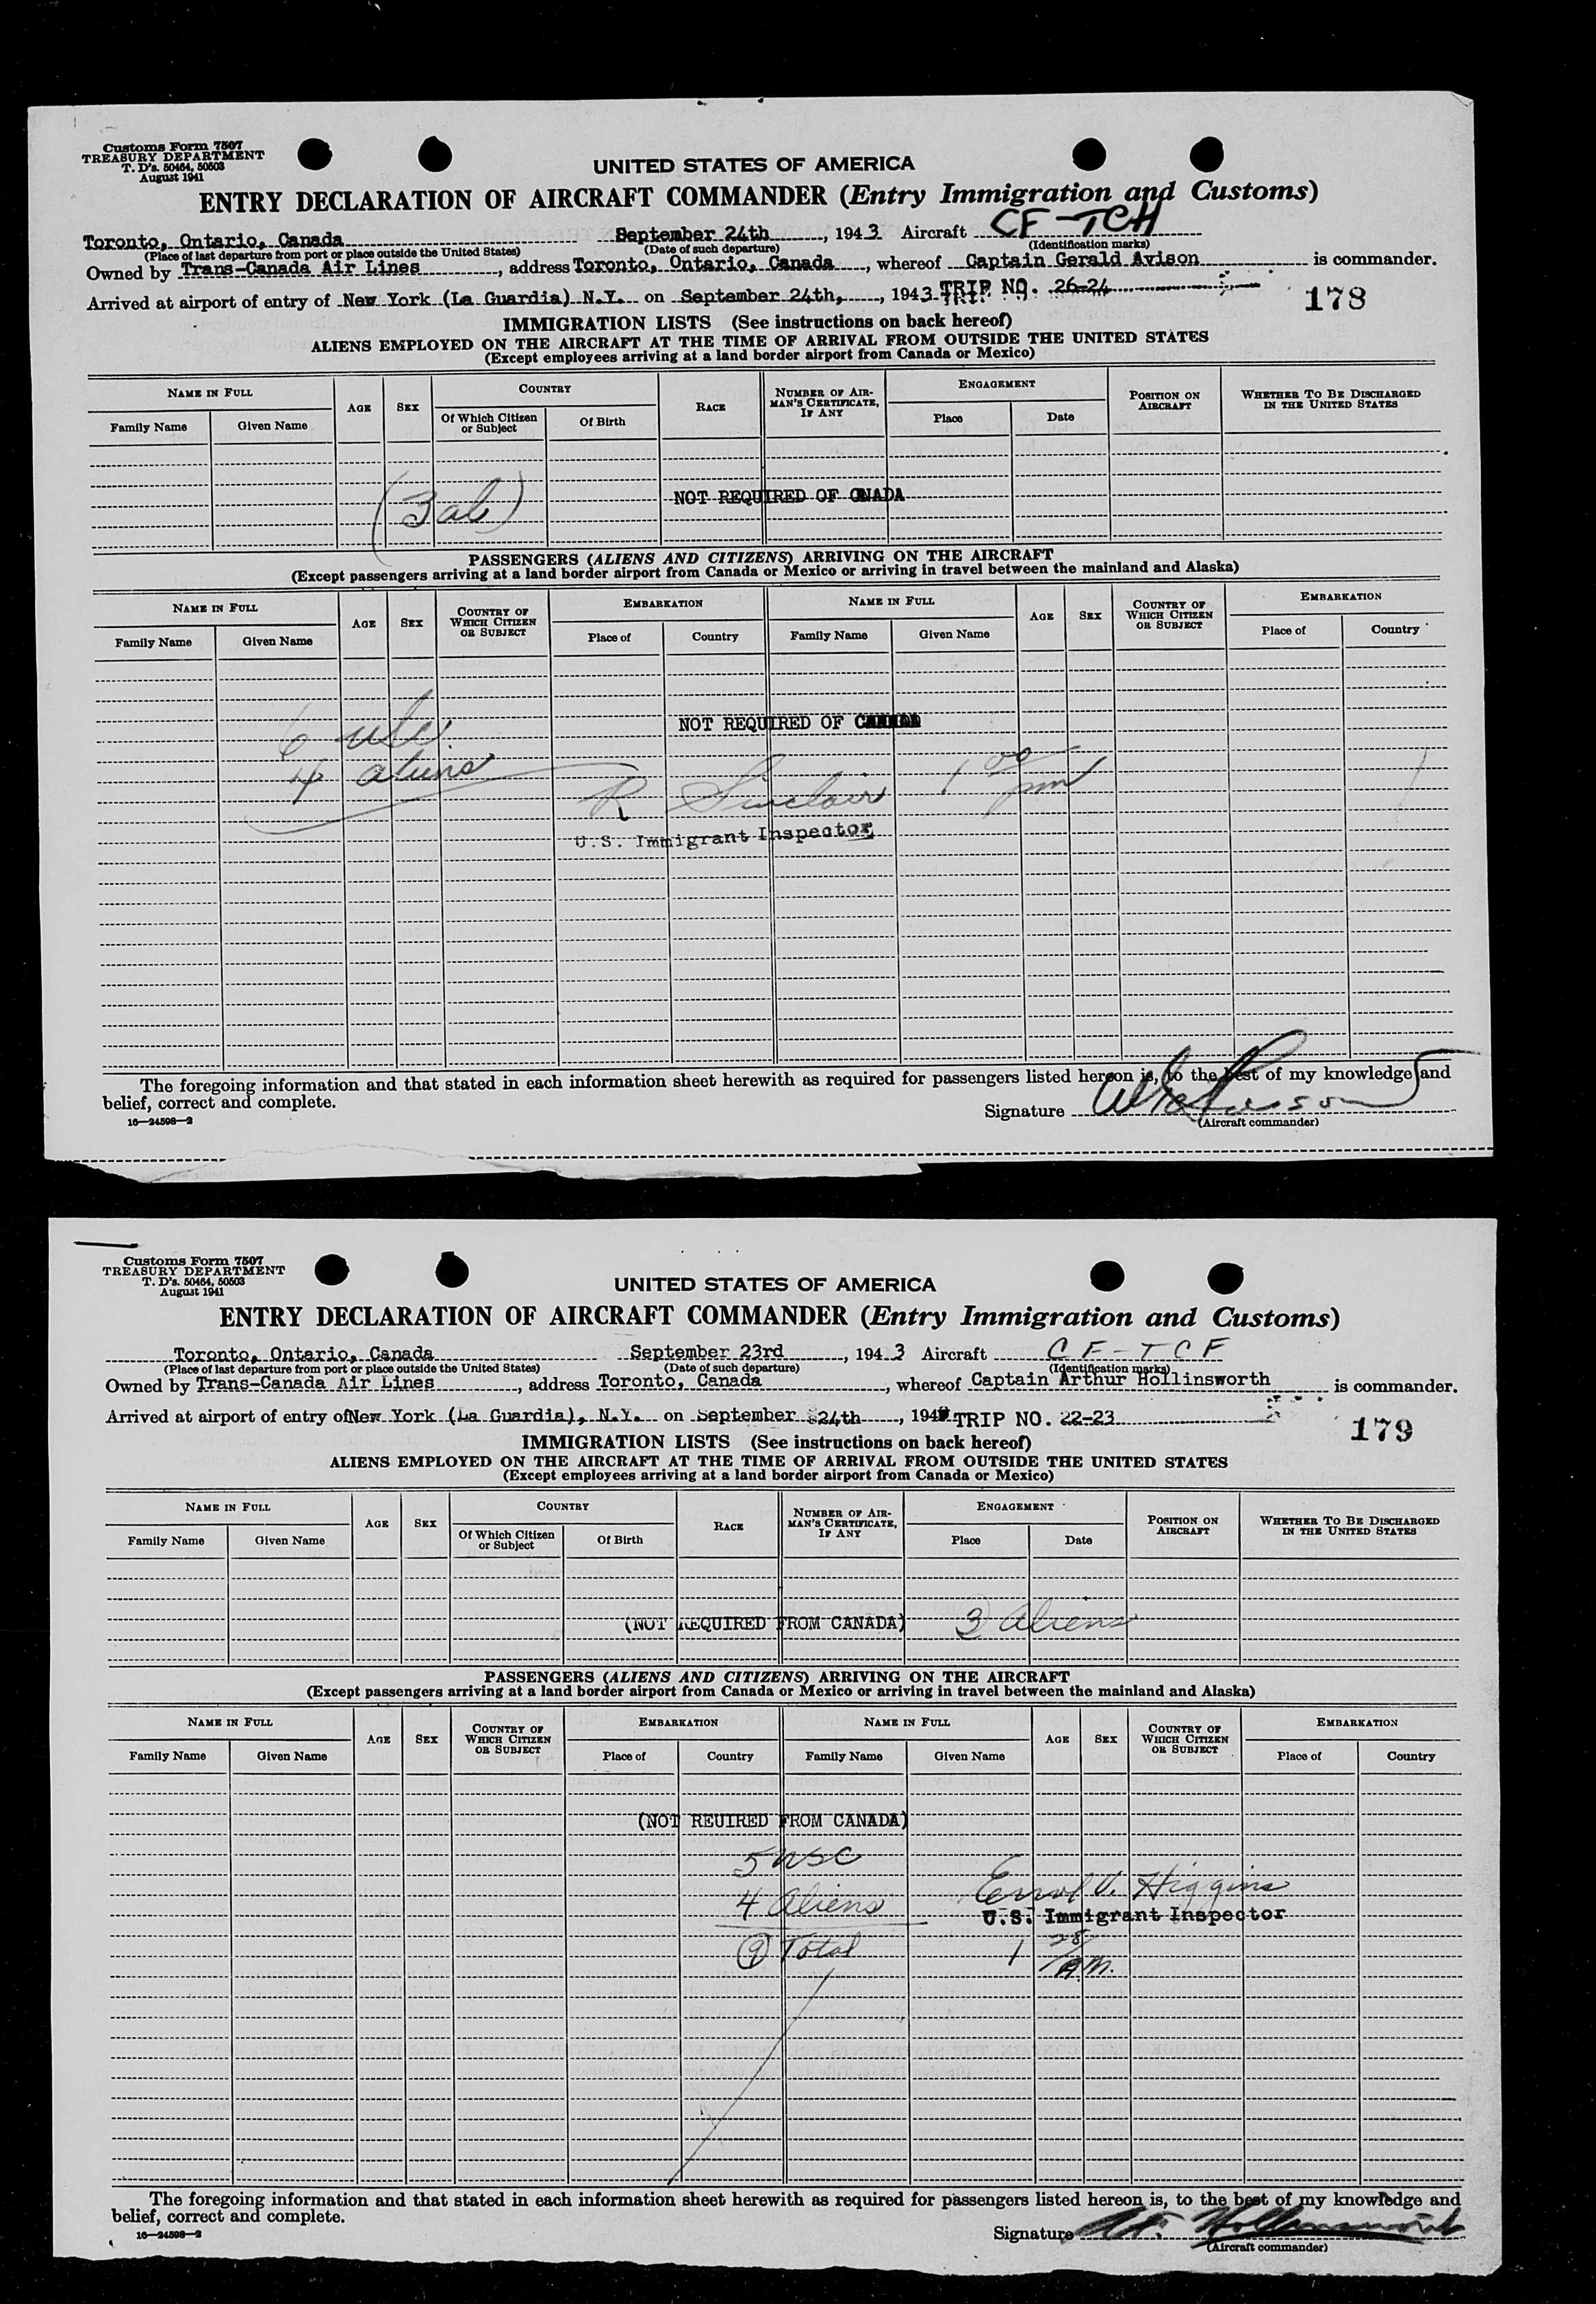 Customs Form 7507
TREASURY DEPARTMENT
T. D's. 50464, 50503
August 1941
UNITED STATES OF AMERICA
ENTRY DECLARATION OF AIRCRAFT COMMANDER (Entry Immigration and Customs)
Toronto, Ontario, Canada September 24th, 1943 Aircraft CF-TCH
(Place of last departure from port or place outside the United States) (Date of such departure) (Identification marks)
Owned by Trans-Canada Air Lines, address Toronto, Ontario, Canada, whereof Captain Gerald Avison is commander.
Arrived at airport of entry of New York (La Guardia) N.Y. on September 24th, 1943 TRIP NO. 26-24 178
IMMIGRATION LISTS (See instructions on back hereof)
ALIENS EMPLOYED ON THE AIRCRAFT AT THE TIME OF ARRIVAL FROM OUTSIDE THE UNITED STATES
(Except employees arriving at a land border airport from Canada or Mexico)
NAME IN FULL AGE SEX COUNTRY RACE NUMBER OF AIRMAN'S CERTIFICATE, IF ANY ENGAGEMENT POSITION ON AIRCRAFT WHETHER TO BE DISCHARGED IN THE UNITED STATES
Family Name Given Name Of Which Citizen or Subject Of Birth Place Date
(3 al) NOT REQUIRED OF CNADA
PASSENGERS (ALIENS AND CITIZENS) ARRIVING ON THE AIRCRAFT
(Except passengers arriving at a land border airport from Canada or Mexico or arriving in travel between the mainland and Alaska)
NAME IN FULL AGE SEX COUNTRY OF WHICH CITIZEN OR SUBJECT EMBARKATION NAME IN FULL AGE SEX COUNTRY OF WHICH CITIZEN OR SUBJECT EMBARKATION
Family Name Given Name Place of Country Family Name Given Name Place of Country
6 usc. NOT REQUIRED OF CANADA
4 aliens
R Sinclair 1 00 pm
U.S. Immigrant Inspector
The foregoing information and that stated in each information sheet herewith as required for passengers listed hereon is, to the best of my knowledge and
belief, correct and complete.
Signature
16—24598—2 (Aircraft commander)
Customs Form 7507
TREASURY DEPARTMENT
T. D's. 50464, 50503
August 1941
UNITED STATES OF AMERICA
ENTRY DECLARATION OF AIRCRAFT COMMANDER (Entry Immigration and Customs)
Toronto, Ontario, Canada September 23rd, 1943 Aircraft CF-TCF
(Place of last departure from port or place outside the United States) (Date of such departure) (Identification marks)
Owned by Trans-Canada Air Lines, address Toronto, Canada, whereof Captain Arthur Hollinsworth is commander.
Arrived at airport of entry of New York (La Guardia), N.Y. on September 24th, 194 TRIP NO. 22-23 179
IMMIGRATION LISTS (See instructions on back hereof)
ALIENS EMPLOYED ON THE AIRCRAFT AT THE TIME OF ARRIVAL FROM OUTSIDE THE UNITED STATES
(Except employees arriving at a land border airport from Canada or Mexico)
NAME IN FULL AGE SEX COUNTRY RACE NUMBER OF AIRMAN'S CERTIFICATE, IF ANY ENGAGEMENT POSITION ON AIRCRAFT WHETHER TO BE DISCHARGED IN THE UNITED STATES
Family Name Given Name Of Which Citizen or Subject Of Birth Place Date
(NOT REQUIRED FROM CANADA) 3 Aliens
PASSENGERS (ALIENS AND CITIZENS) ARRIVING ON THE AIRCRAFT
(Except passengers arriving at a land border airport from Canada or Mexico or arriving in travel between the mainland and Alaska)
NAME IN FULL AGE SEX COUNTRY OF WHICH CITIZEN OR SUBJECT EMBARKATION NAME IN FULL AGE SEX COUNTRY OF WHICH CITIZEN OR SUBJECT EMBARKATION
Family Name Given Name Place of Country Family Name Given Name Place of Country
(NOT REUIRED FROM CANADA)
5 USC
4 Aliens Errol V. Higgins
U.S. Immigrant Inspector
9 Total 1 28 A.M.
The foregoing information and that stated in each information sheet herewith as required for passengers listed hereon is, to the best of my knowledge and
belief, correct and complete.
Signature Hollinsworth
16—24598—2 (Aircraft commander)